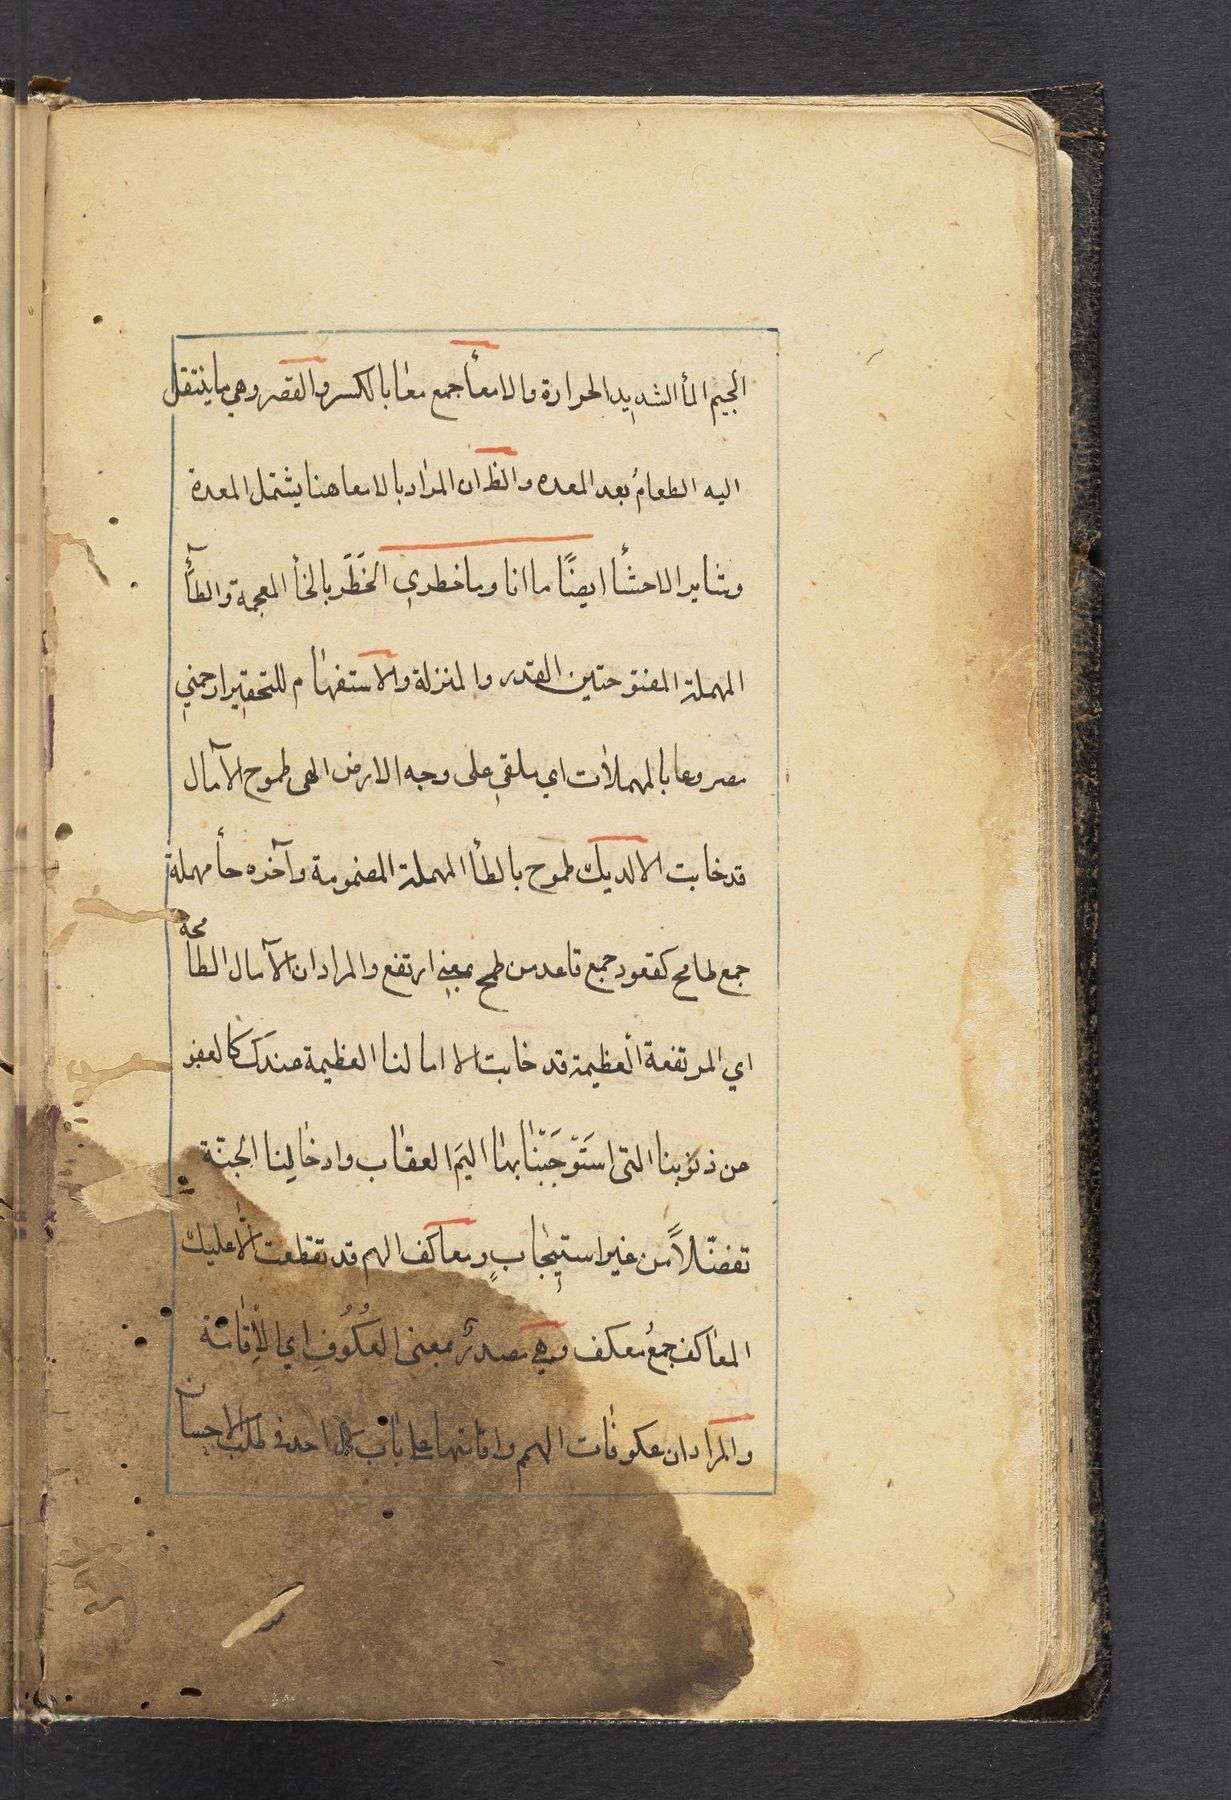 الجيم المأ الشديد الحرارة والامعأ جمع معا بالكسر والقصر وهي ما ينتقل
اليه الطعام بعد المعده والظ ان المراد بالامعا هنا يشتمل المعدة
وساير الاحشأ ايضًا ما انا وما خطري الخَطَر بالخأ المعجمة والطأ
المهملة المفتوحتين القدر والمنزلة والاستفهام للتحقير ارحمني
مصروعا بالمهملات اي ملقي على وجه الارض الهى طموح الآمال
قد خابت الا لديك طموح بالطأ المهملة المضمومة وآخره حأ مهملة
جمع طامح كقعود جمع قاعد من طمح بمعني ارتفع والمراد ان الآمال الطامحة
اي المرتفعة العظيمة قد خابت الا امالنا العظيمة عندك كالعفو
عن ذنوبنا التى استَوْجَبْنا بها اليمَ العقاب وادخالِنا الجنّة
تفضّلاً من غير استيجابٍ ومعاكف الهمم قد تقطعت الا عليك
المعاكف جمعُ معكف وهي مصدرٌ بمعنى العُكُوفِ اي الإقامة
والمراد ان عكوفات الهمم واقامتها على باب كل احد في طلب الاحسان